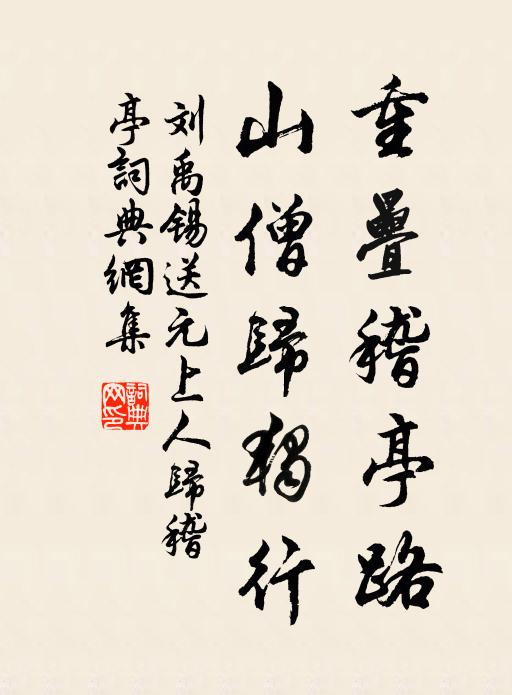 重疊稽亭路
山僧歸獨行
刘禹锡送元上人歸稽
亭詞典網集
詞典
网印